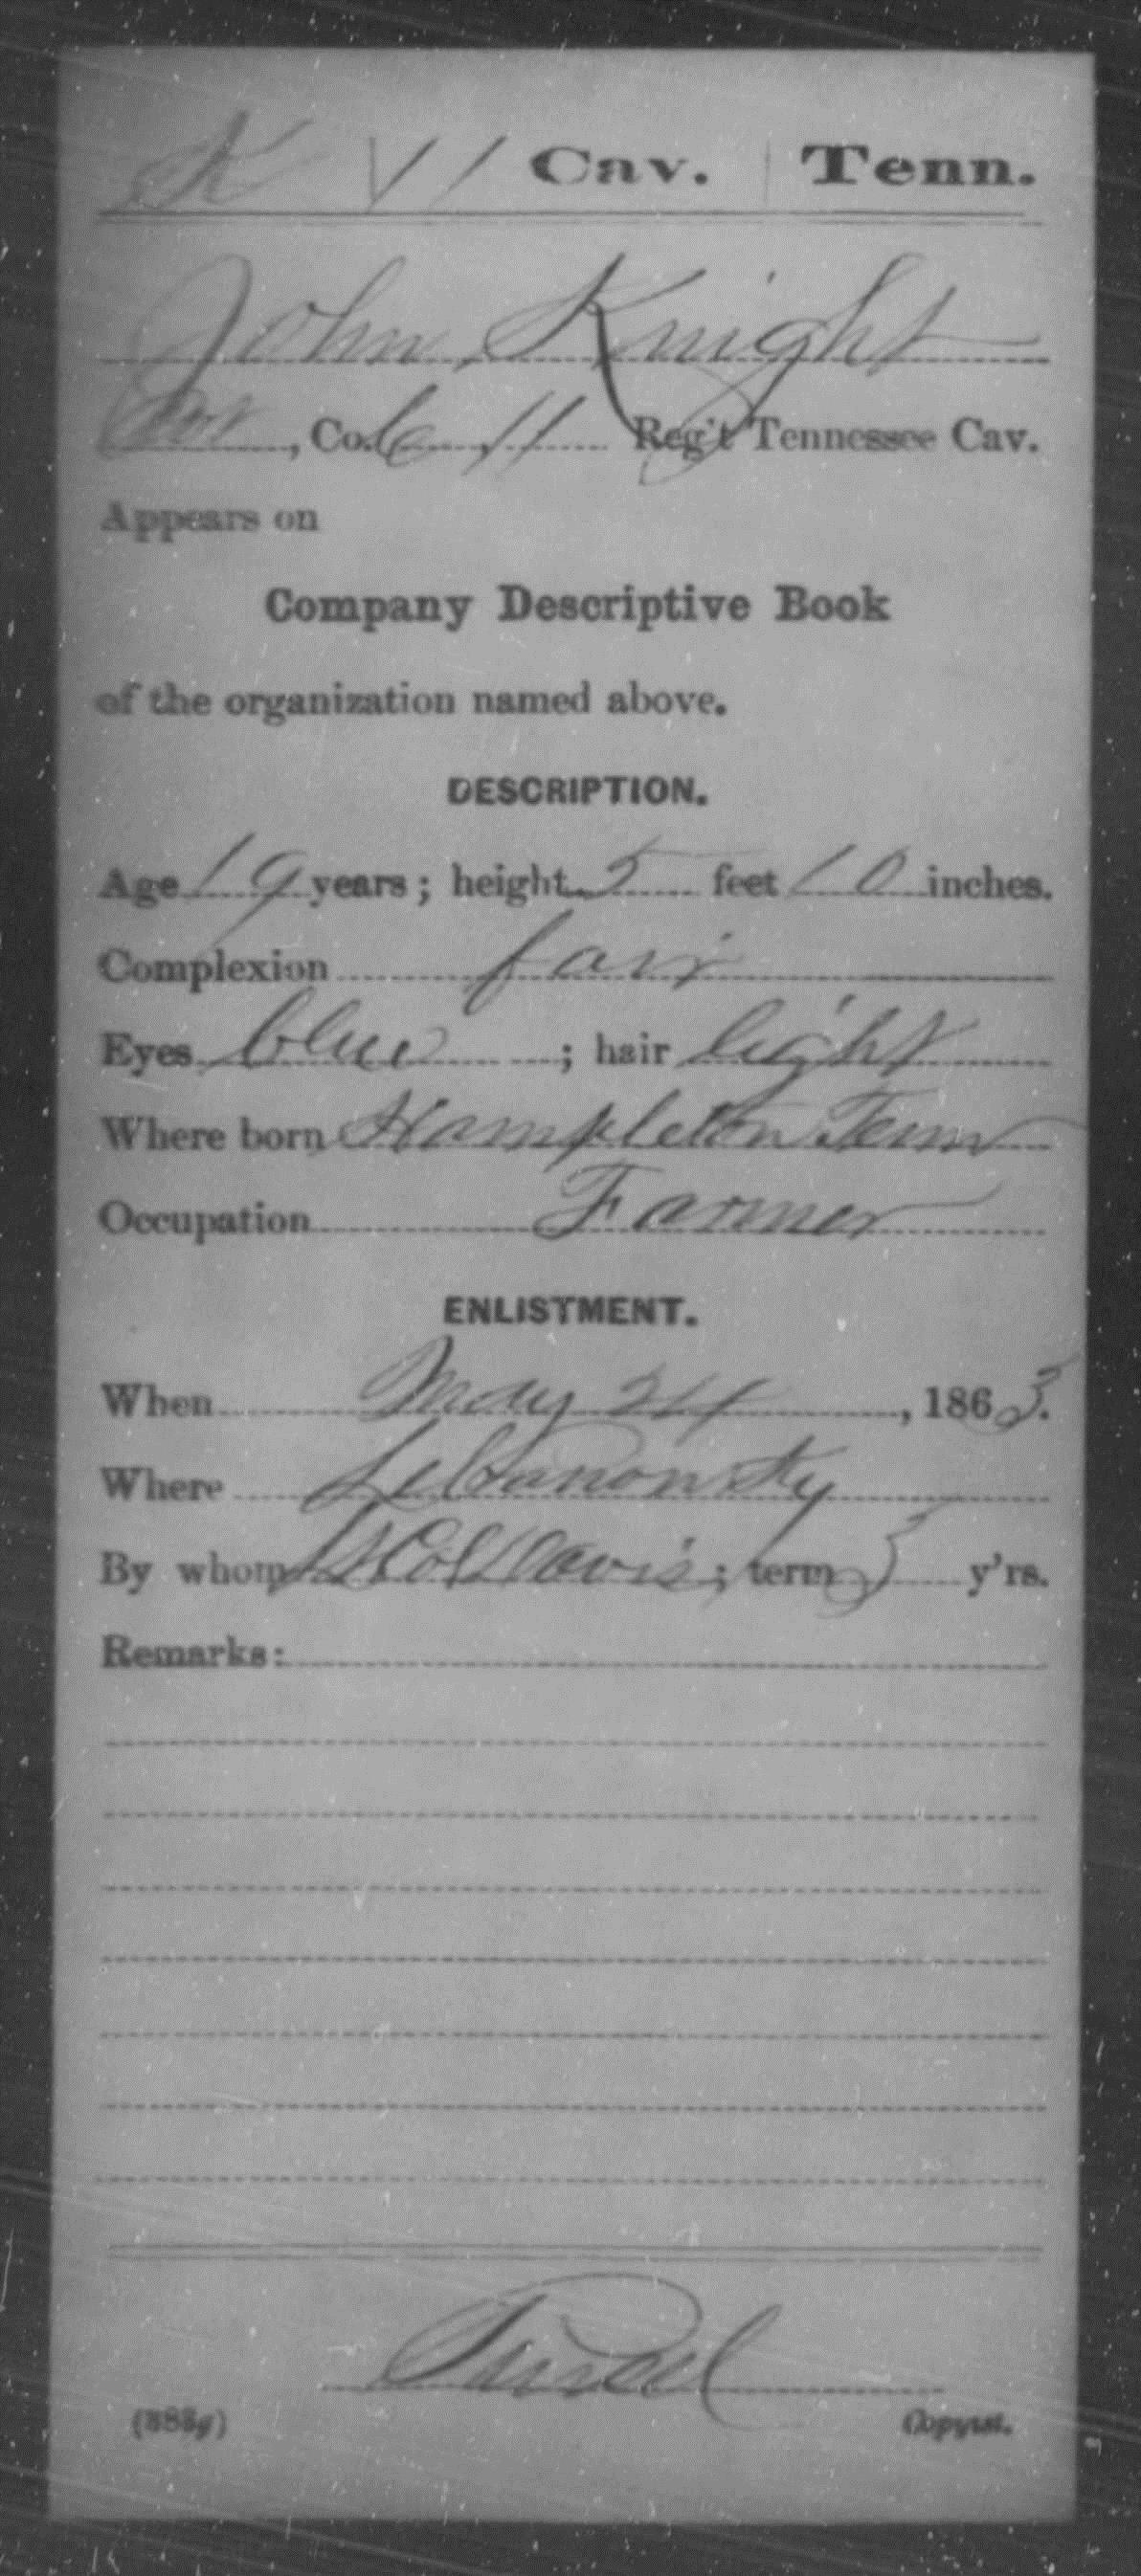 K | 11 | Cav. | Tenn.
John Knight
Pvt, Co. C, 11 Reg't Tennessee Cav.
Appears on
Company Descriptive Book
of the organization named above.
DESCRIPTION.
Age 19 years; height 5 feet 10 inches.
Complexion fair
Eyes blue; hair light
Where born Hampleton Tenn
Occupation Farmer
ENLISTMENT.
When May 24, 1863.
Where Lebanon Ky
By whom Lt Col Davis; term 3 y'rs.
Remarks:
(383g) Copyist.